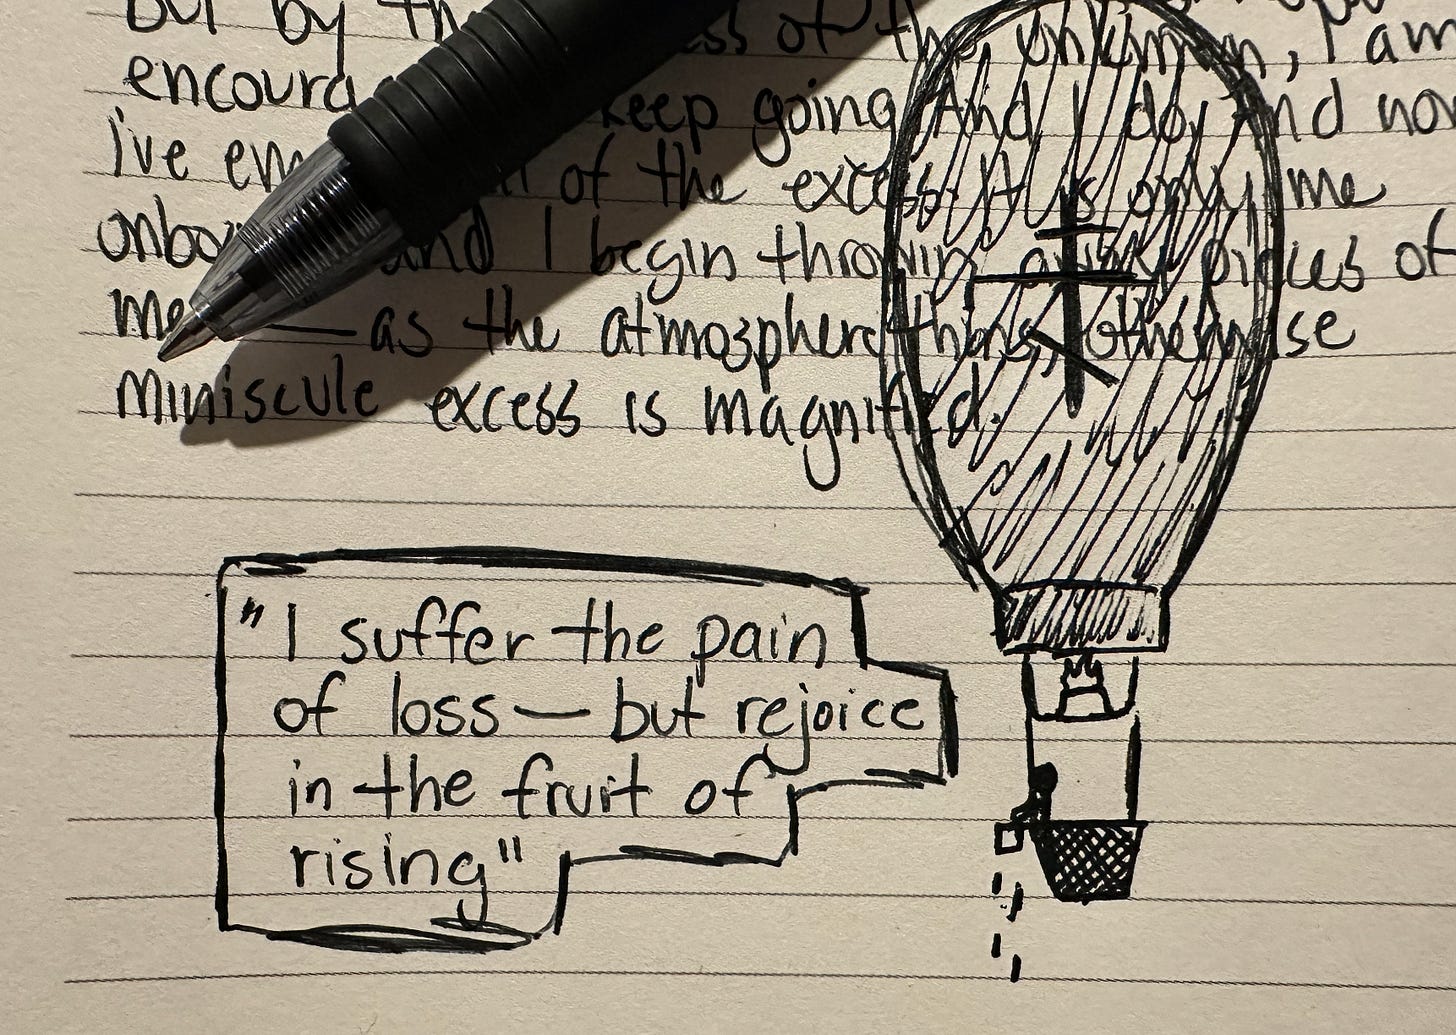 but by th ss of the unknown, I am
encoura keep going. And I do, And now
I've em all of the excess. It is only me
onboa and I begin throwing away pieces of
me — as the atmosphere thins, otherwise
miniscule excess is magnified.
"I suffer the pain
of loss — but rejoice
in the fruit of
rising"